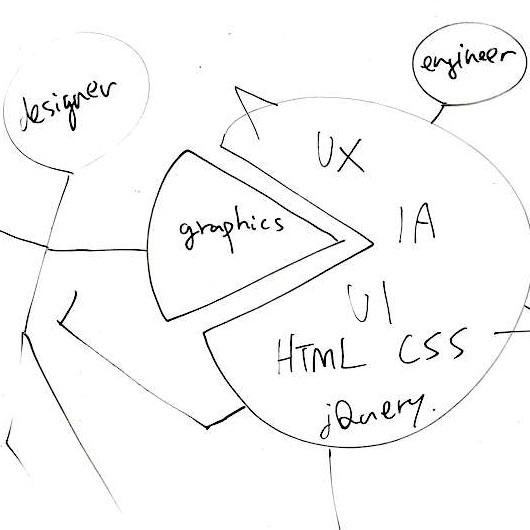 designer
engineer
UX
graphics
IA
UI
HTML CSS
jQuery.